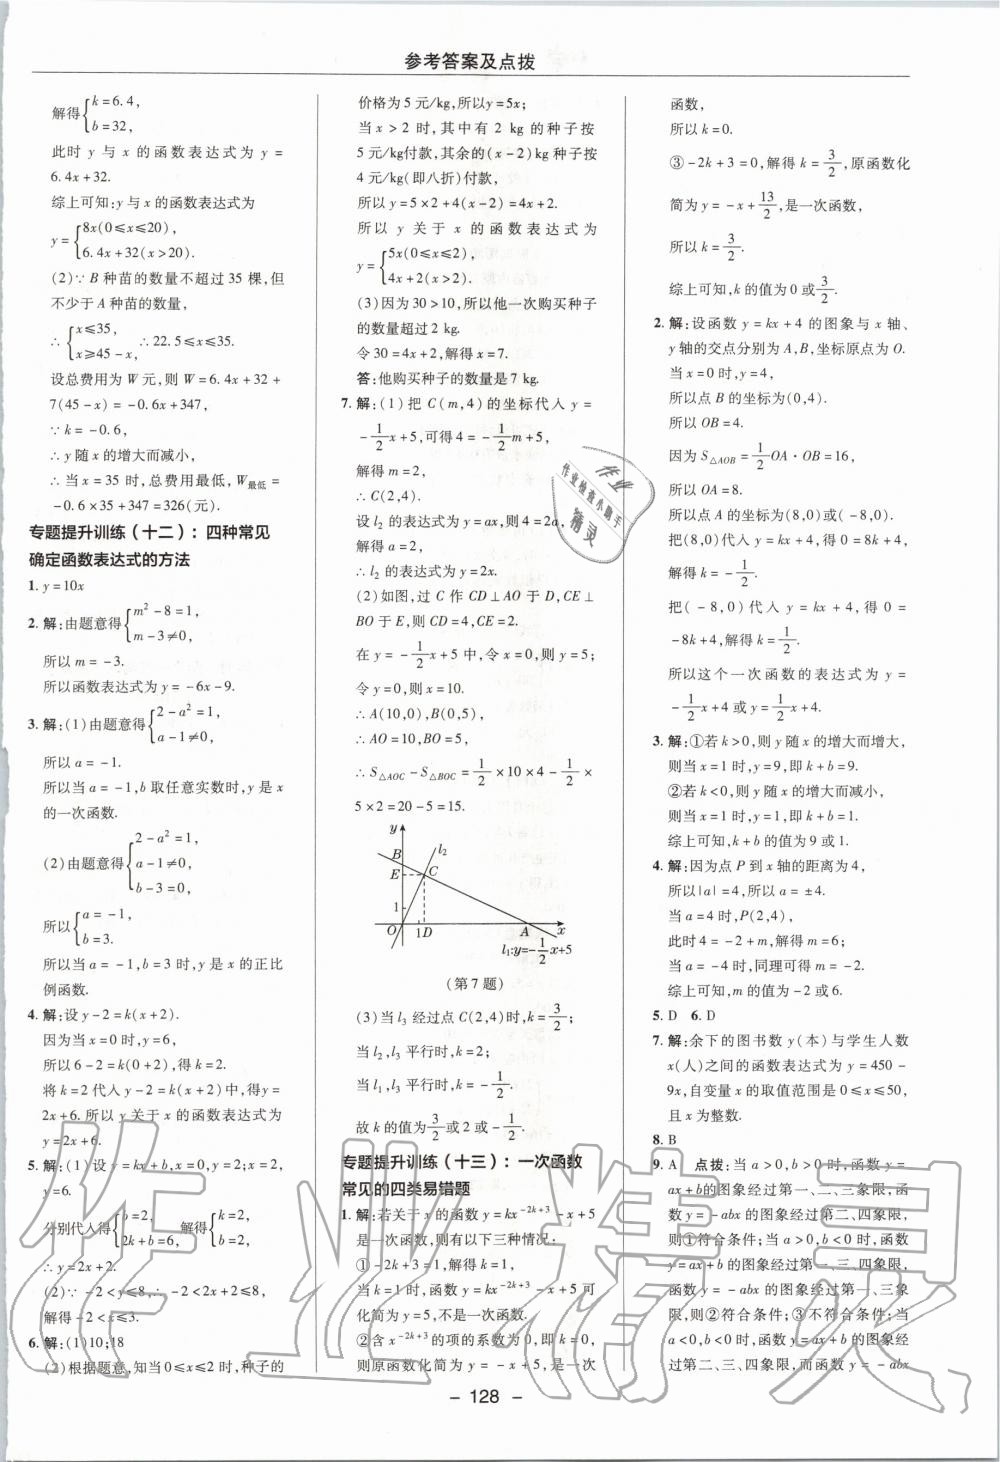 参考答案及点拨
解得{k=6.4,
b=32,
此时 y 与 x 的函数表达式为 y=
6.4x+32.
综上可知:y 与 x 的函数表达式为
y={8x(0≤x≤20),
6.4x+32(x>20).
(2)∵B 种苗的数量不超过 35 棵,但
不少于 A 种苗的数量,
∴{x≤35,
x≥45-x, ∴22.5≤x≤35.
设总费用为 W 元,则 W=6.4x+32+
7(45-x)=-0.6x+347,
∵k=-0.6,
∴y 随 x 的增大而减小,
∴当 x=35 时,总费用最低,W最低=
-0.6×35+347=326(元).
专题提升训练(十二):四种常见
确定函数表达式的方法
1. y=10x
2. 解:由题意得{m²-8=1,
m-3≠0,
所以 m=-3.
所以函数表达式为 y=-6x-9.
3. 解:(1)由题意得{2-a²=1,
a-1≠0,
所以 a=-1.
所以当 a=-1,b 取任意实数时,y 是 x
的一次函数.
(2)由题意得{2-a²=1,
a-1≠0,
b-3=0,
所以{a=-1,
b=3.
所以当 a=-1,b=3 时,y 是 x 的正比
例函数.
4. 解:设 y-2=k(x+2).
因为当 x=0 时,y=6,
所以 6-2=k(0+2),得 k=2.
将 k=2 代入 y-2=k(x+2)中,得 y=
2x+6. 所以 y 关于 x 的函数表达式为
y=2x+6.
5. 解:(1)设 y=kx+b,x=0,y=2;x=2,
y=6.
分别代入得{b=2,
2k+b=6, 解得{k=2,
b=2,
∴y=2x+2.
(2)∵-2<y≤8,∴-2<2x+2≤8,
解得-2<x≤3.
6. 解:(1)10;18
(2)根据题意,知当 0≤x≤2 时,种子的
价格为 5 元/kg,所以 y=5x;
当 x>2 时,其中有 2 kg 的种子按
5 元/kg付款,其余的(x-2)kg 种子按
4 元/kg(即八折)付款,
所以 y=5×2+4(x-2)=4x+2.
所以 y 关于 x 的函数表达式为
y={5x(0≤x≤2),
4x+2(x>2).
(3)因为 30>10,所以他一次购买种子
的数量超过 2 kg.
令 30=4x+2,解得 x=7.
答:他购买种子的数量是 7 kg.
7. 解:(1)把 C(m,4)的坐标代入 y=
-1/2x+5,可得 4=-1/2m+5,
解得 m=2,
∴C(2,4).
设 l₂ 的表达式为 y=ax,则 4=2a,
解得 a=2,
∴l₂ 的表达式为 y=2x.
(2)如图,过 C 作 CD⊥AO 于 D,CE⊥
BO 于 E,则 CD=4,CE=2.
在 y=-1/2x+5 中,令 x=0,则 y=5;
令 y=0,则 x=10.
∴A(10,0),B(0,5),
∴AO=10,BO=5,
∴S△AOC-S△BOC=1/2×10×4-1/2×
5×2=20-5=15.
y
B
l₂
E
C
1
O
1D
A
x
l₁:y=-1/2x+5
(第 7 题)
(3)当 l₃ 经过点 C(2,4)时,k=3/2;
当 l₂,l₃ 平行时,k=2;
当 l₁,l₃ 平行时,k=-1/2.
故 k 的值为3/2或 2 或-1/2.
专题提升训练(十三):一次函数
常见的四类易错题
1. 解:若关于 x 的函数 y=kx⁻²ᵏ⁺³-x+5
是一次函数,则有以下三种情况:
①-2k+3=1,解得 k=1,
当 k=1 时,函数 y=kx⁻²ᵏ⁺³-x+5 可
化简为 y=5,不是一次函数.
②含 x⁻²ᵏ⁺³ 的项的系数为 0,即 k=0,
则原函数化简为 y=-x+5,是一次
函数,
所以 k=0.
③-2k+3=0,解得 k=3/2,原函数化
简为 y=-x+13/2,是一次函数,
所以 k=3/2.
综上可知,k 的值为 0 或3/2.
2. 解:设函数 y=kx+4 的图象与 x 轴、
y 轴的交点分别为 A,B,坐标原点为 O.
当 x=0 时,y=4,
所以点 B 的坐标为(0,4).
所以 OB=4.
因为 S△AOB=1/2OA·OB=16,
所以 OA=8.
所以点 A 的坐标为(8,0)或(-8,0).
把(8,0)代入 y=kx+4,得 0=8k+4,
解得 k=-1/2.
把(-8,0)代入 y=kx+4,得 0=
-8k+4,解得 k=1/2.
所以这个一次函数的表达式为 y=
-1/2x+4 或 y=1/2x+4.
3. 解:①若 k>0,则 y 随 x 的增大而增大,
则当 x=1 时,y=9,即 k+b=9.
②若 k<0,则 y 随 x 的增大而减小,
则当 x=1 时,y=1,即 k+b=1.
综上可知,k+b 的值为 9 或 1.
4. 解:因为点 P 到 x 轴的距离为 4,
所以|a|=4,所以 a=±4.
当 a=4 时,P(2,4),
此时 4=-2+m,解得 m=6;
当 a=-4 时,同理可得 m=-2.
综上可知,m 的值为-2 或 6.
5. D 6. D
7. 解:余下的图书数 y(本)与学生人数
x(人)之间的函数表达式为 y=450-
9x,自变量 x 的取值范围是 0≤x≤50,
且 x 为整数.
8. B
9. A 点拨:当 a>0,b>0 时,函数 y=
ax+b的图象经过第一、二、三象限,函
数 y=-abx 的图象经过第二、四象限,
则①符合条件;当 a>0,b<0 时,函数
y=ax+b 的图象经过第一、三、四象限,
函数 y=-abx 的图象经过第一、三象
限,则②符合条件;③不符合条件;当
a<0,b<0 时,函数 y=ax+b 的图象经
过第二、三、四象限,而函数 y=-abx
- 128 -
作业
作业检查小助手
精灵
作业精灵